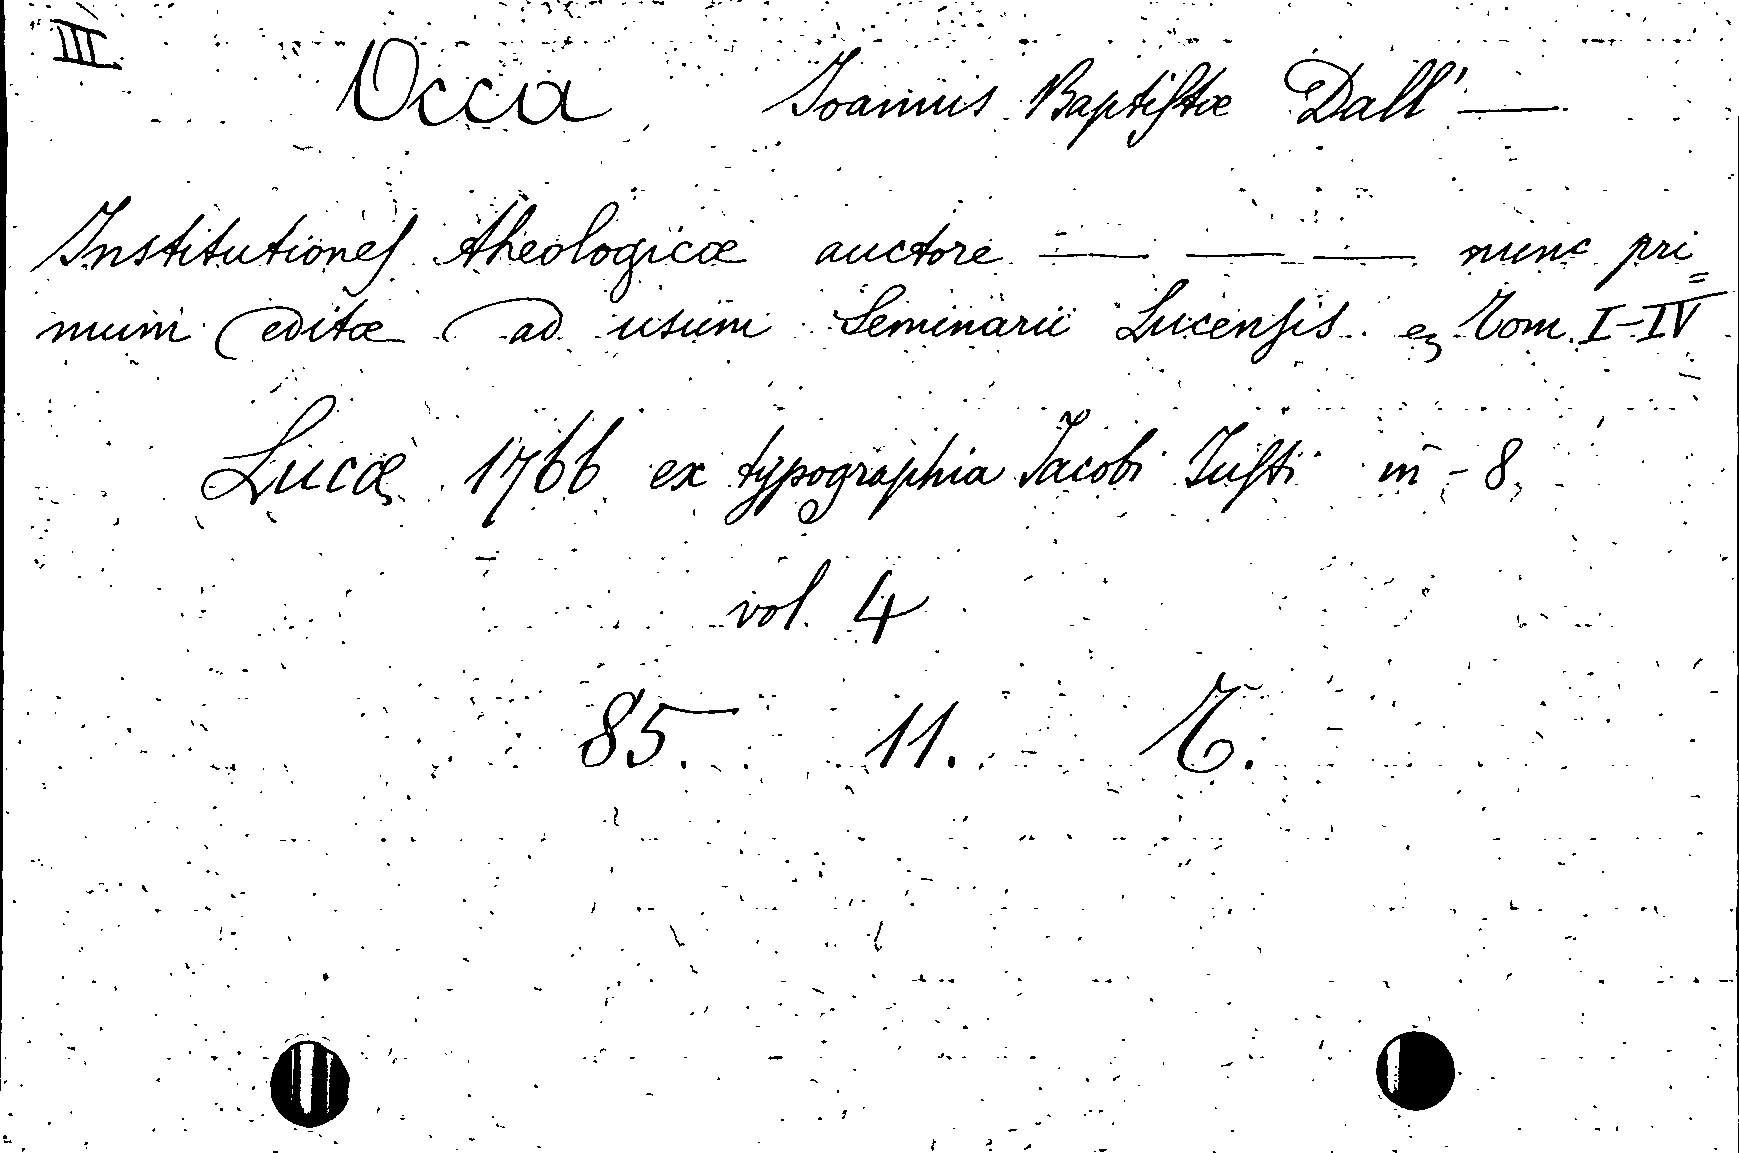 III.
Occa Joannis Baptistæ Dall' —
Institutiones theologicæ auctore — — — nunc pri=
mum editæ ad usum Seminarii Lucensis. Tom. I-IV
Lucæ 1766 ex typographia Jacobi Justi in-8,
vol. 4
85. 11. T.